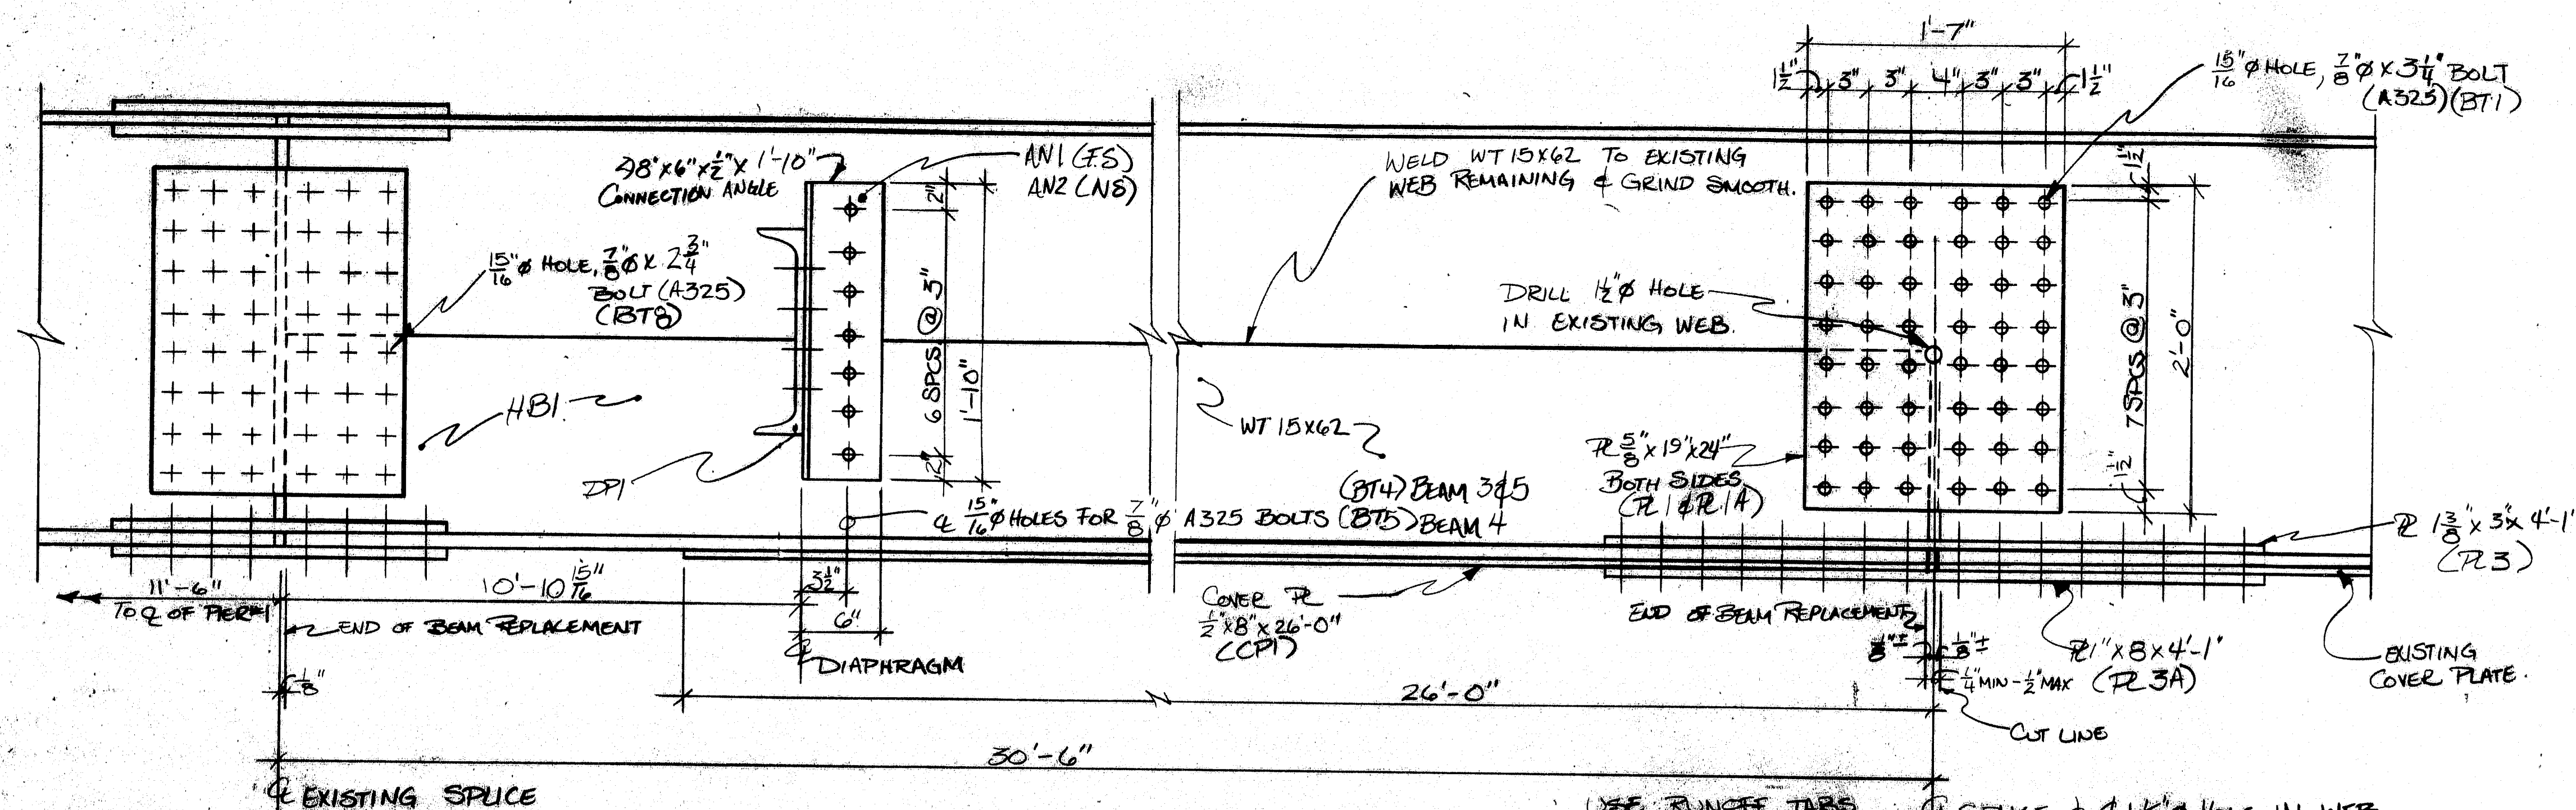 1'-7"
1 1/2" 3" 3" 4" 3" 3" 1 1/2"
15/16" ø HOLE, 7/8" ø x 3 1/4" BOLT
(A325) (BT1)
∠ 8" x 6" x 1/2" x 1'-10"
CONNECTION ANGLE
AN1 (F.S)
AN2 (NS)
WELD WT 15X62 TO EXISTING
WEB REMAINING & GRIND SMOOTH.
15/16" ø HOLE, 7/8" ø x 2 3/4"
BOLT (A325)
(BT8)
2"
6 SPCS @ 3"
1'-10"
2"
DRILL 1 1/2" ø HOLE
IN EXISTING WEB.
1 1/2"
7 SPCS @ 3"
2'-0"
1 1/2"
HB1
WT 15X62
DP1
PL 5/8" x 19" x 24"
BOTH SIDES
(PL 1 & PL 1A)
(BT4) BEAM 3 & 5
℄ 15/16" ø HOLES FOR 7/8" ø A325 BOLTS (BT5) BEAM 4
PL 1 3/8" x 3" x 4'-1"
(PL 3)
11'-6"
TO ℄ OF PIER 1
10'-10 15/16"
3 1/2"
6"
END OF BEAM REPLACEMENT
℄ DIAPHRAGM
1/8"
COVER PL
1/2" x 8" x 26'-0"
(CCP1)
END OF BEAM REPLACEMENT
1/8" ±
1/4" MIN - 1/2" MAX
PL 1" x 8 x 4'-1"
(PL 3A)
EXISTING
COVER PLATE.
26'-0"
CUT LINE
30'-6"
℄ EXISTING SPLICE
USE RUNOFF TABS